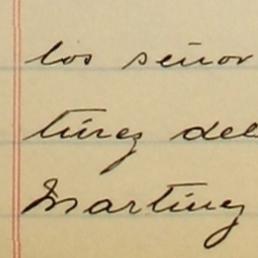 los señor
tínez del
Martínez